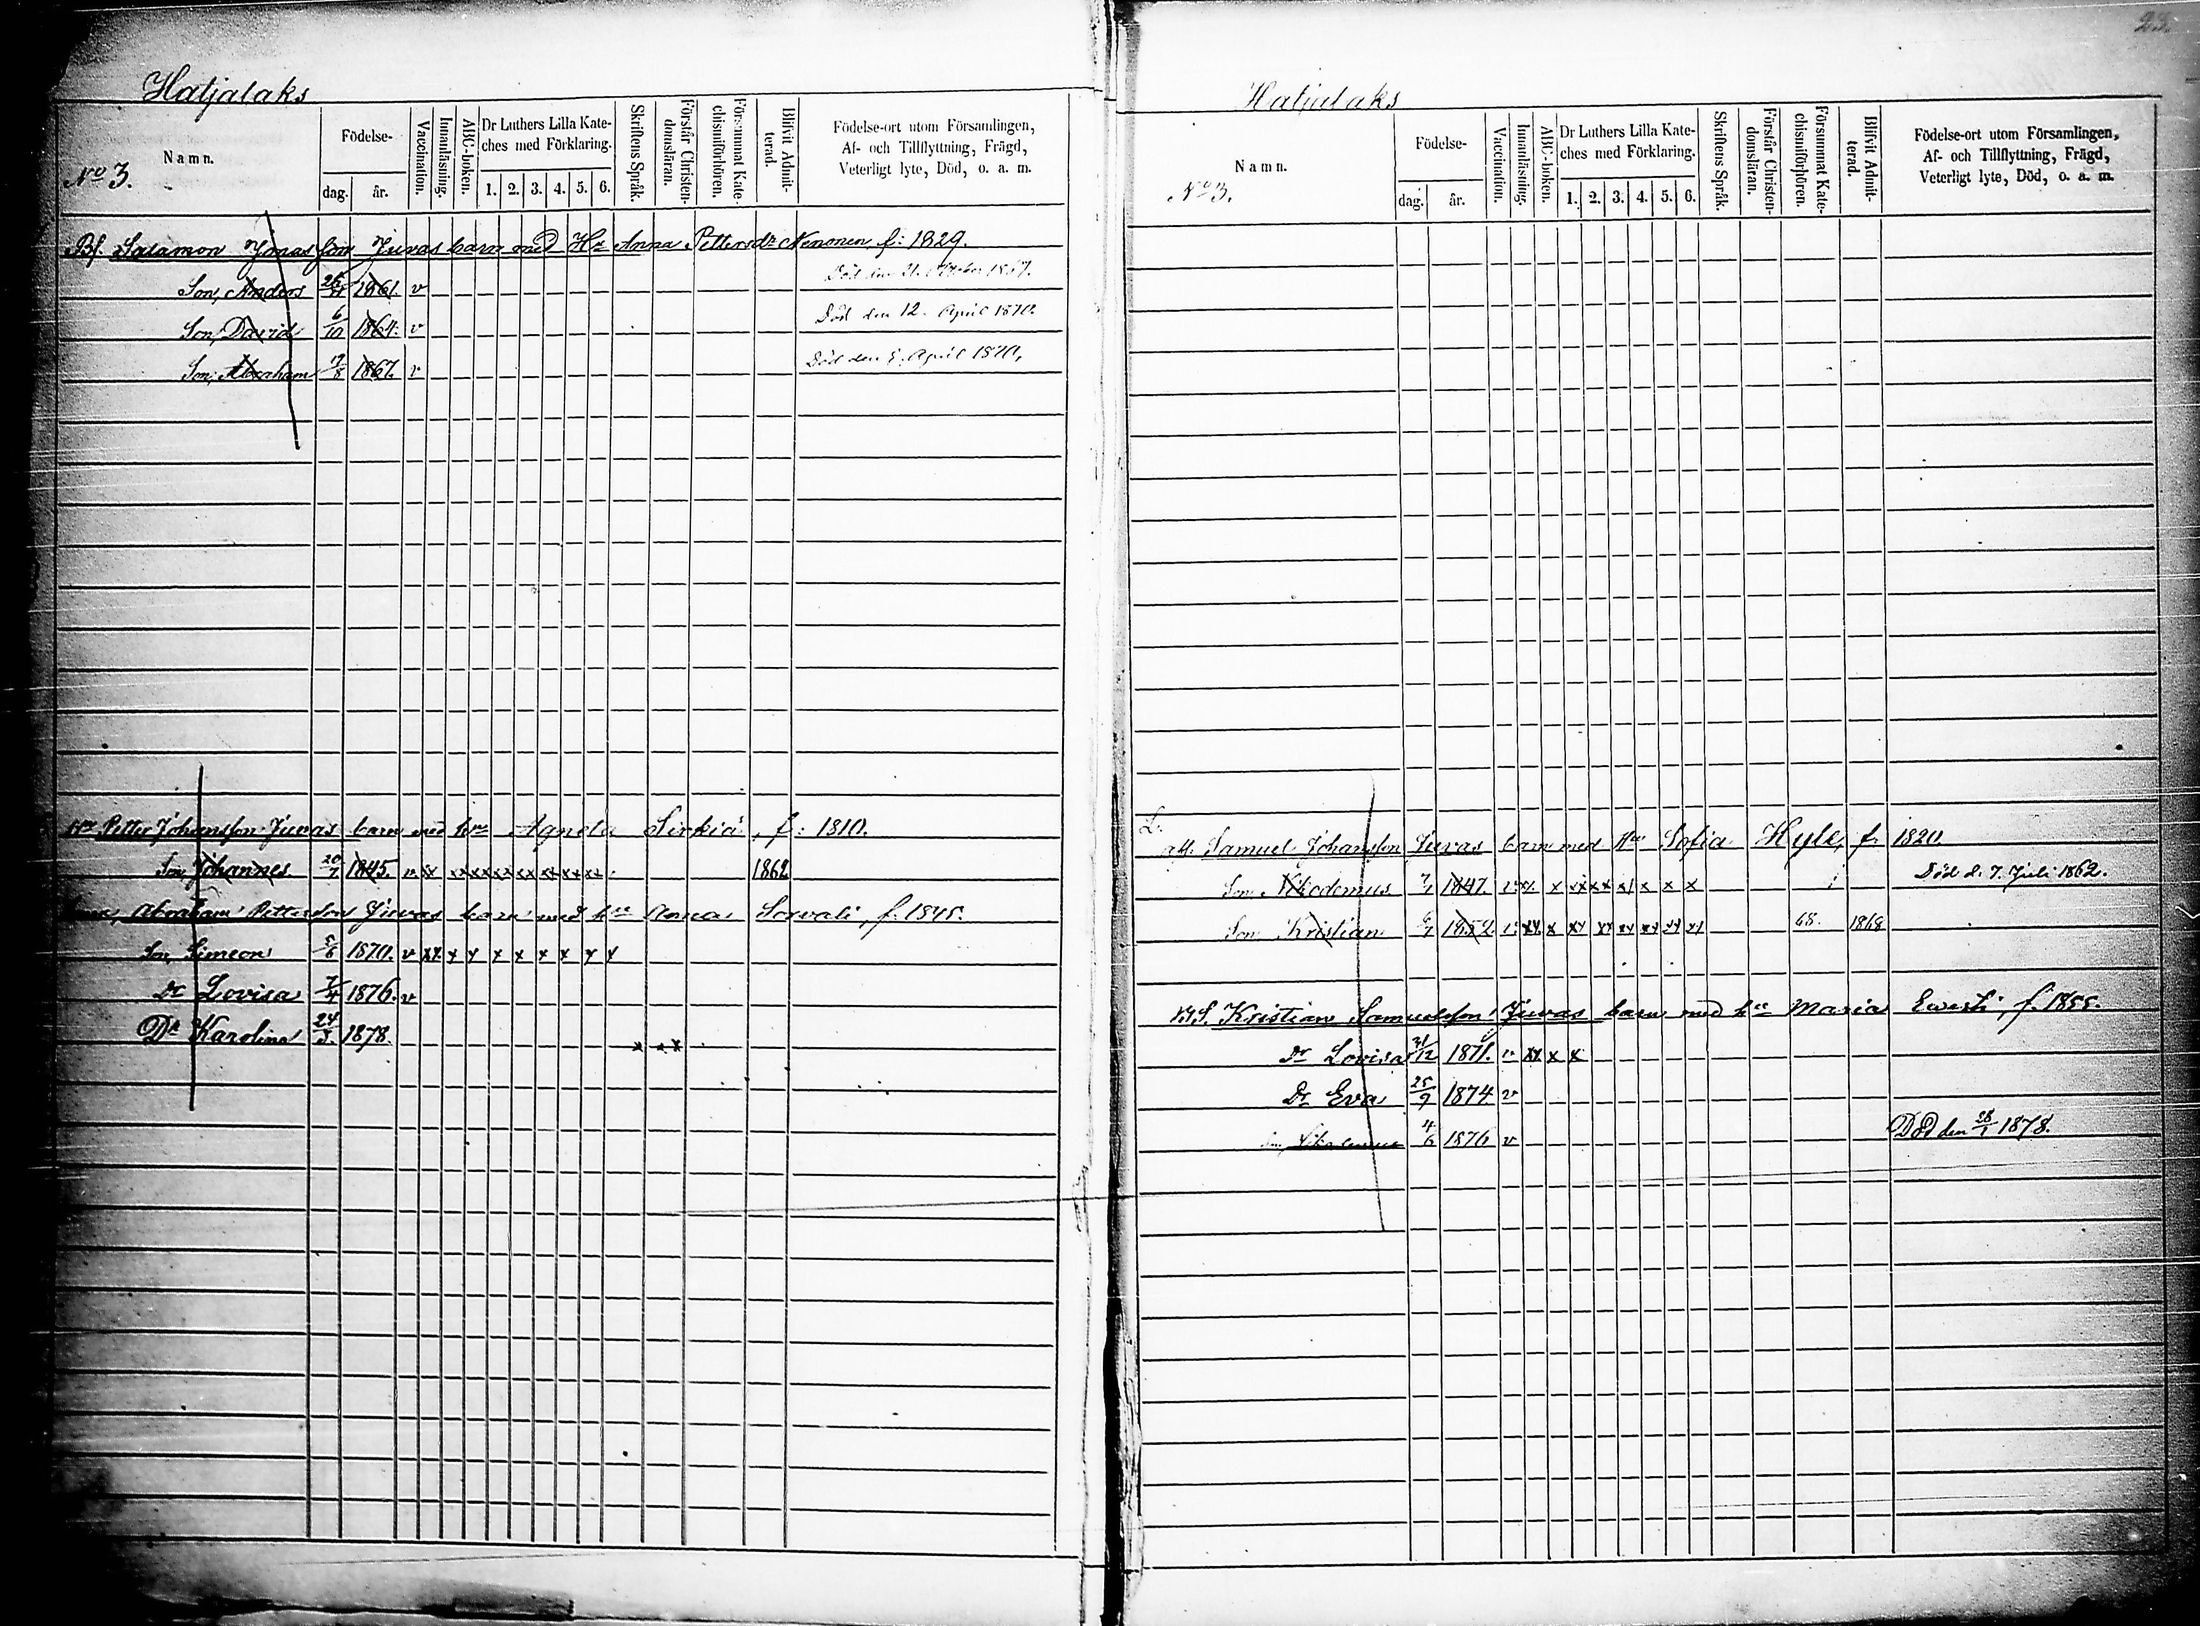 Hatjalaks
No 3.
Namn.
Födelse-
dag. år.
Vaccination.
Innanläsning.
ABC-boken.
Dr Luthers Lilla Kate-
ches med Förklaring.
1. 2. 3. 4. 5. 6.
Skriftens Språk.
Förstår Christen-
domsläran.
Försummat Kate-
chismiförhören.
Blifvit Admit-
terad.
Födelse-ort utom Församlingen,
Af- och Tillflyttning, Frägd,
Veterligt lyte, Död, o. a. m.
Bf. Salamon Jonasson Juvas barn med Hu Anna Pettersdr Nenonen f: 1829.
Son, Anders 1861. v Död den 21. October 1867.
Son, David 6/10 1864. v Död den 12. April 1870.
Son, Abraham 17/8 1867. v Död den April 1870.
Petter Johansson Juvas barn med hu Agneta Sirkiä, f: 1810.
Son, Johannes 20/7 1845. v xx xx xx xx xx xx xx xx 1862
Abraham Pettersson Juvas barn med hu Anna Sorvali, f. 1845.
Son, Simeon 5/6 1870. v xx x x x x x x x x
Dr Lovisa 7/4 1876. v
Dr Karolina 24/3 1878. x x x
23.
Hatjalaks
No 3.
Namn.
Födelse-
dag. år.
Vaccination.
Innanläsning.
ABC-boken.
Dr Luthers Lilla Kate-
ches med Förklaring.
1. 2. 3. 4. 5. 6.
Skriftens Språk.
Förstår Christen-
domsläran.
Försummat Kate-
chismiförhören.
Blifvit Admit-
terad.
Födelse-ort utom Församlingen,
Af- och Tillflyttning, Frägd,
Veterligt lyte, Död, o. a. m.
Samuel Johansson Juvas barn med Hu Sofia Hyle, f. 1820.
Son Nikodemus 1847. v x. x xx xx x x x x Död d. 7. Juli 1862.
Son Kristian 1852. v xx x xx xx xx xx xx xx 68. 1868
Kristian Samuelsson Juvas barn med hu Maria f. 1855.
Dr Lovisa 31/12 1871. v xx x x
Dr Eva 25/9 1874 v
4/6 1876 v Död den 28/1 1878.